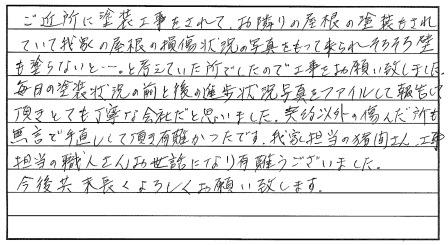 ご近所に塗装工事をされて、お隣りの屋根の塗装もされ
ていて我家の屋根の損傷状況の写真をもって来られそろそろ壁
も塗らないと…。と考えていた所でしたので工事をお願い致しました。
毎日の塗装状況の前と後の進歩状況写真をファイルして報告して
頂きとても丁寧な会社だと思いました。契約以外の傷んだ所も
無言で手直しして頂き有難かったです。我家担当の さん、工事
担当の職人さんお世話になり有難うございました。
今後共末長くよろしくお願い致します。